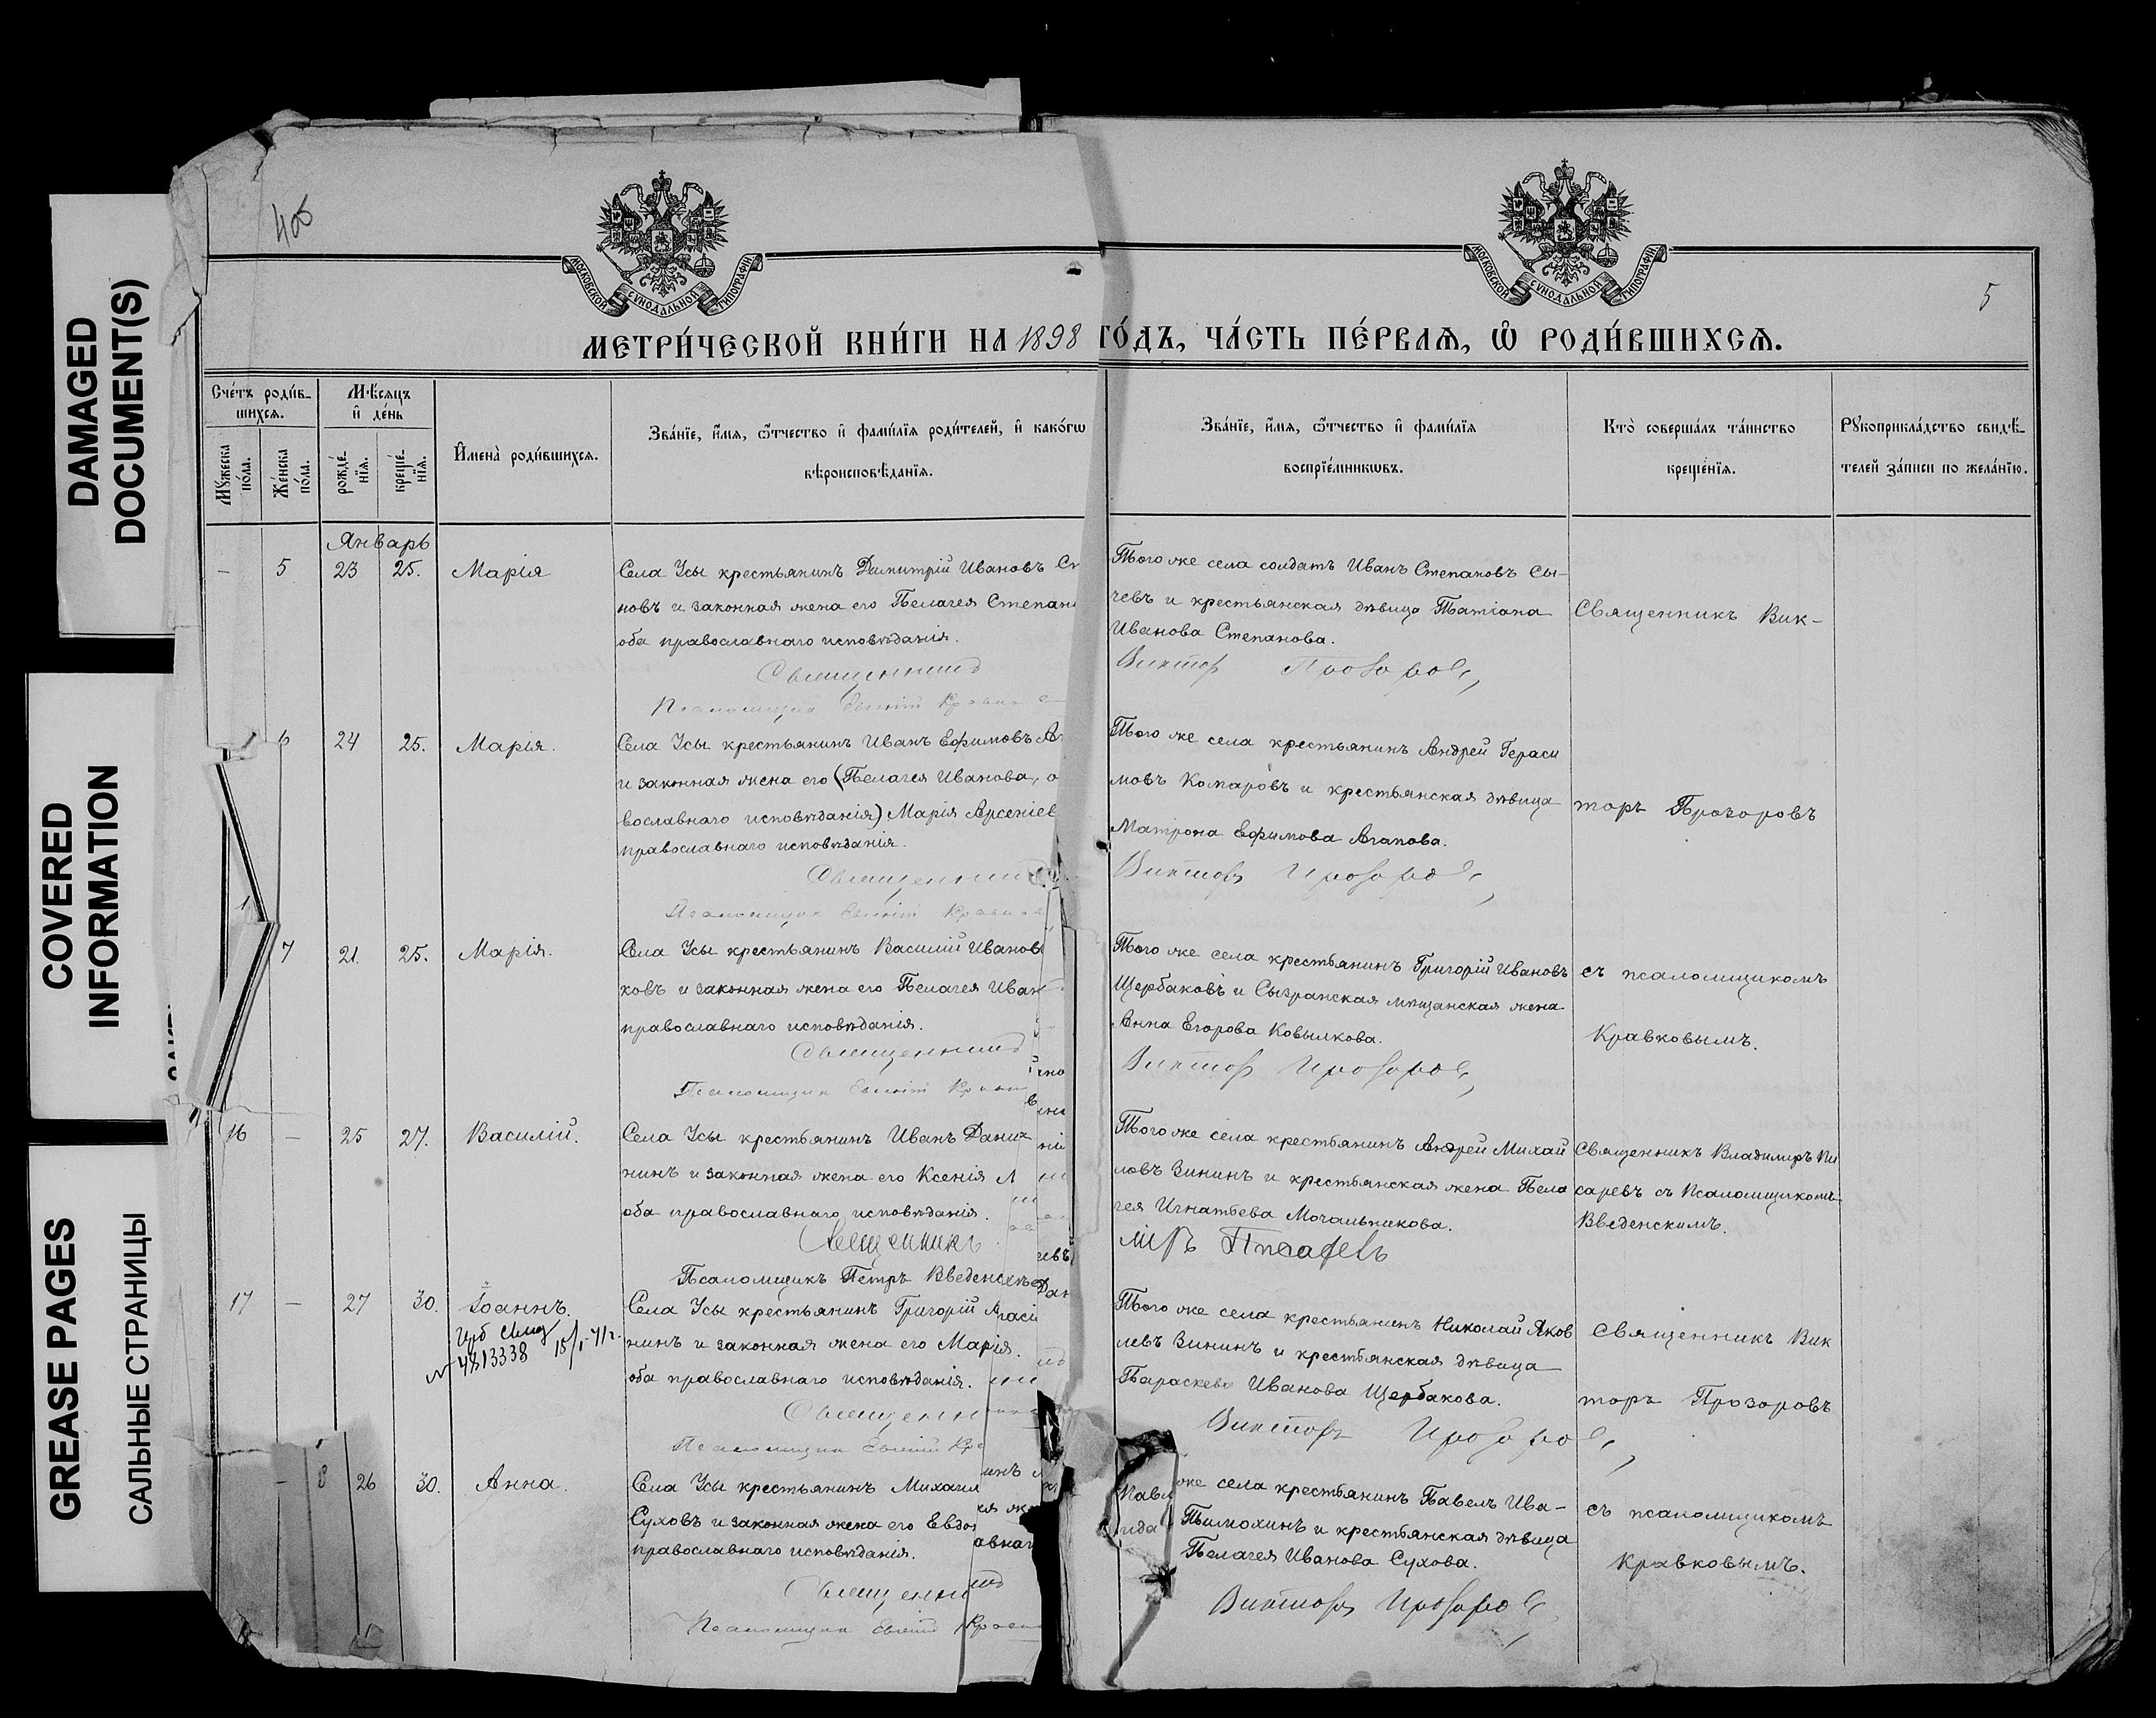 DAMAGED
DOCUMENT(S)
COVERED
INFORMATION
GREASE PAGES
САЛЬНЫЕ СТРАНИЦЫ
МОСКОВСКОЙ СѴНОДАЛЬНОЙ ТИПОГРАФІИ
МОСКОВСКОЙ СѴНОДАЛЬНОЙ ТИПОГРАФІИ
5
МЕТРИ́ЧЕСКОЙ КНИ́ГИ НА 1898 ГО́ДЪ, ЧА́СТЬ ПЕ́РВАѦ, Ѡ РОДИ́ВШИХСѦ.
Сче́тъ роди́в-
шихсѧ.
Мѣ́сѧцъ
и҆ де́нь
Мꙋ́жеска по́ла.
Же́нска по́ла.
рожде́-нїѧ.
креще́-нїѧ.
И҆мена̀ роди́вшихсѧ.
Зва́нїе, и҆́мѧ, ѻ҆́тчество и҆ фами́лїѧ роди́телей, и҆ како́гѡ
вѣроисповѣ́данїѧ.
Зва́нїе, и҆́мѧ, ѻ҆́тчество и҆ фами́лїѧ
воспрїе́мникѡвъ.
Кто̀ соверша́лъ та́инство
креще́нїѧ.
Рꙋкоприкла́дство свидѣ́-
телей за́писи по жела́нїю.
Январь
– 5 23 25. Марія
Села Усы крестьянинъ Димитрій Ивановъ
новъ и законная жена его Пелагея Степан
оба православнаго исповѣданія.
Священникъ
Псаломщик Евгеній
Того же села солдатъ Иванъ Степановъ Сы-
чевъ и крестьянская дѣвица Татіана
Иванова Степанова.
Виктор Прозоров
Священникъ Вик-
6 24 25. Марія.
Села Усы крестьянинъ Иванъ Ефимовъ
и законная жена его (Пелагея Иванова, о
вославнаго исповѣданія) Марія Арсеніев
православнаго исповѣданія.
Священник
Псаломщик Евгеній
Того же села крестьянинъ Андрей Гераси
мовъ Комаровъ и крестьянская дѣвица
Матрона Ефимова Агапова.
Виктор Прозоров
торъ Прозоровъ
7 21 25. Марія.
Села Усы крестьянинъ Василій Иванов
ковъ и законная жена его Пелагея Иван
православнаго исповѣданія.
Священник
Псаломщик Евгеній
Того же села крестьянинъ Григорій Ивановъ
Щербаковъ и Сызранская мѣщанская жена
Анна Егорова Ковылкова.
Виктор Прозоров
съ псаломщикомъ
Кравковымъ.
16 – 25 27. Василій.
Села Усы крестьянинъ Иванъ Данил
нинъ и законная жена его Ксенія
оба православнаго исповѣданія.
Священникъ
Псаломщикъ Петръ Введенскій
Того же села крестьянинъ Андрей Михай
ловъ Зининъ и крестьянская жена Пела
гея Игнатьева Мочальникова.
міръ Писаревъ
Священникъ Владимиръ Пи
саревъ съ Псаломщикомъ
Введенскимъ.
17 – 27 30. Іоаннъ.
4813338
Села Усы крестьянинъ Григорій
нинъ и законная жена его Марія.
оба православнаго исповѣданія.
Священн
Псаломщик Евгеній
Того же села крестьянинъ Николай Яков
левъ Зининъ и крестьянская дѣвица
Параскева Иванова Щербакова.
Виктор Прозоров
Священникъ Вик
торъ Прозоровъ
– 8 26 30. Анна.
Села Усы крестьянинъ Михаил
Суховъ и законная жена его Евдо
православнаго исповѣданія.
Священ
Псаломщик Евгеній
же села крестьянинъ Павелъ Ива-
Тимохинъ и крестьянская дѣвица
Пелагея Иванова Сухова.
Виктор Прозоров
съ псаломщикомъ
Кравковымъ.